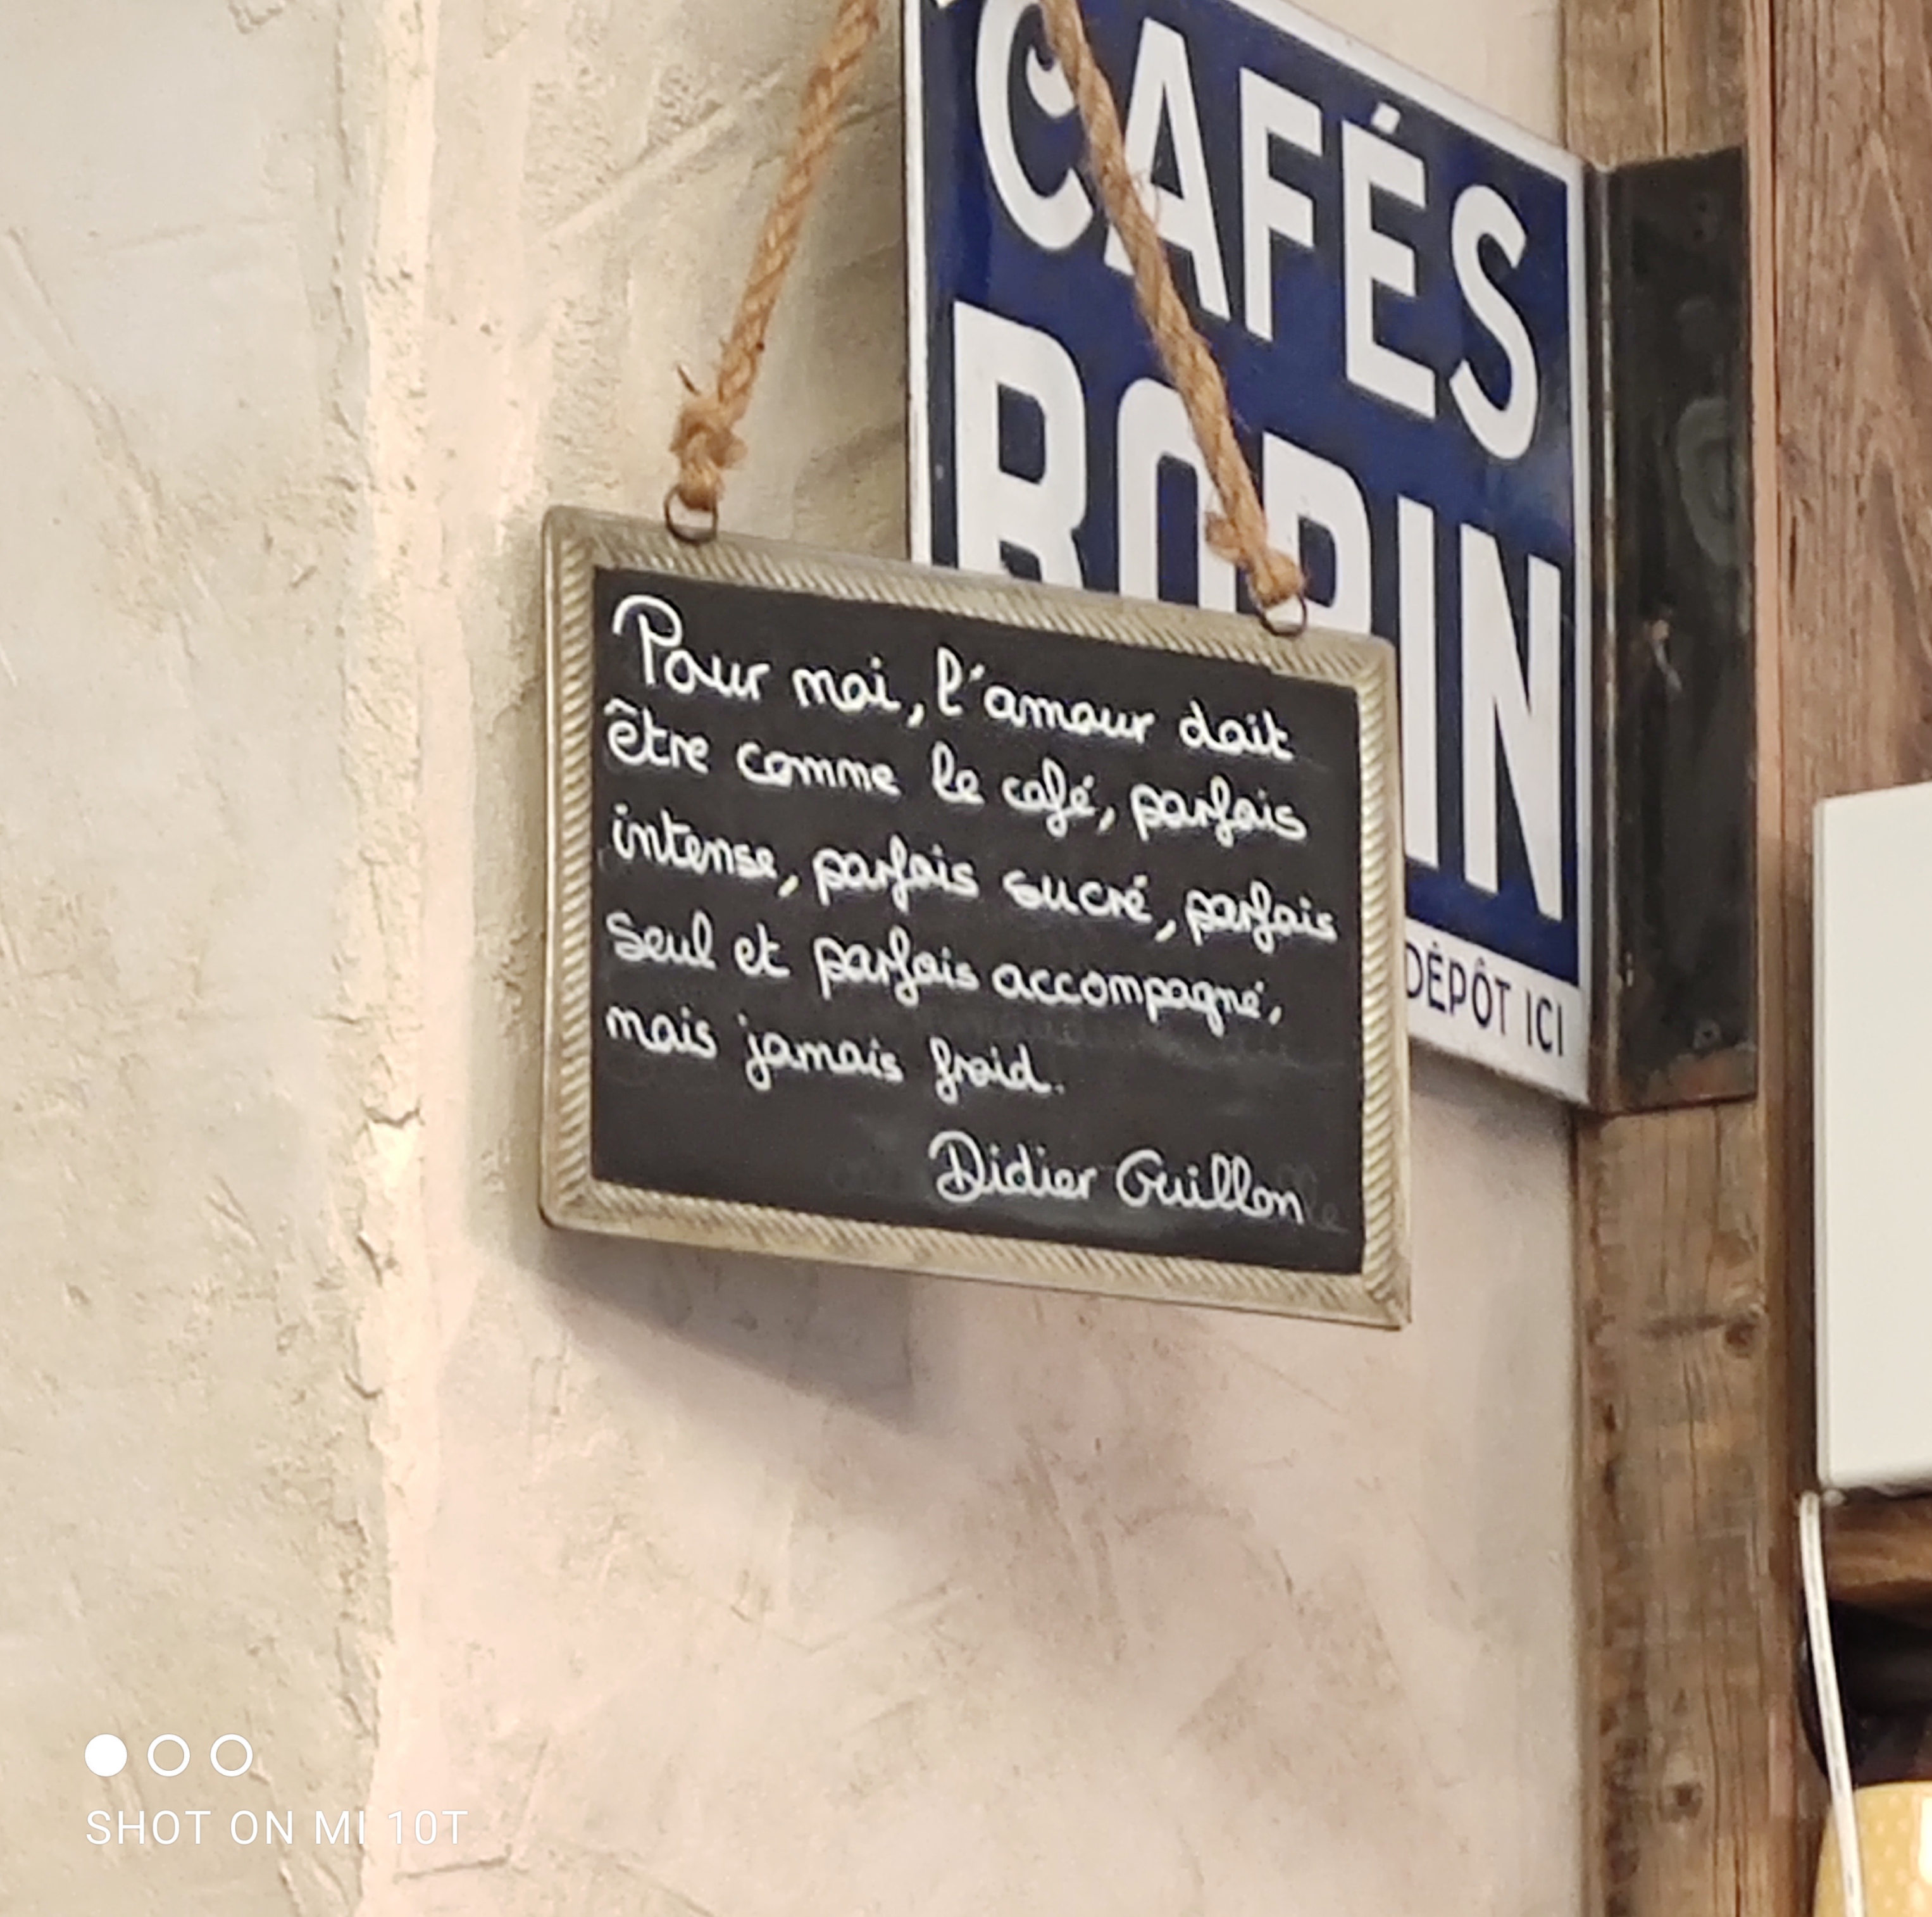 CAFÉS
ROBIN
DÉPÔT ICI
Pour moi, l'amour doit
être comme le café, parfois
intense, parfois sucré, parfois
seul et parfois accompagné,
mais jamais froid.
Didier Guillon
SHOT ON MI 10T